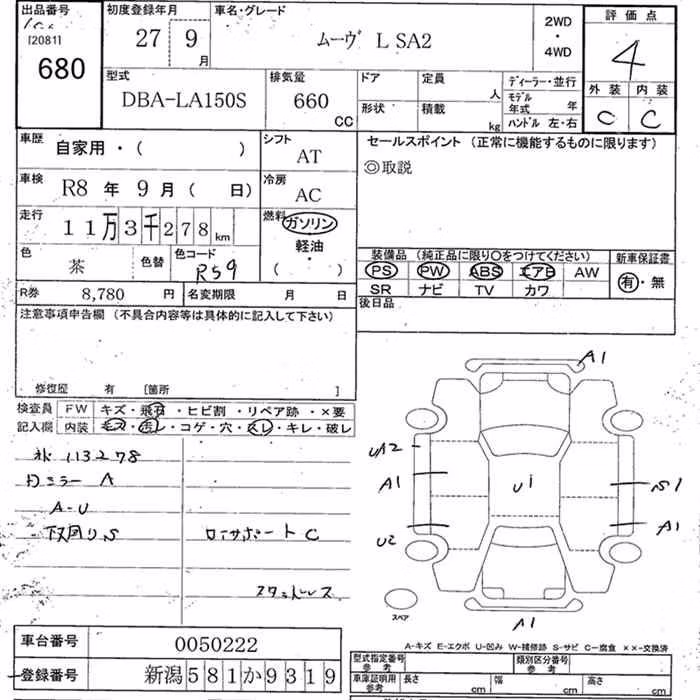 出品番号
[2081]
680
初度登録年月
27 9月
車名・グレード
ムーヴ L SA2
2WD
・
4WD
評価点
4
外装 内装
C C
型式
DBA-LA150S
排気量
660 CC
ドア
形状
定員 人
積載 kg
ディーラー・並行
モデル年式 年
ハンドル 左・右
車歴
自家用・( )
シフト
AT
車検
R8年9月( 日)
冷房
AC
走行
11万3千278km
燃料
ガソリン
軽油
・
( )
色
茶
色替
色コード
R59
R券 8,780円
名変期限 月 日
セールスポイント (正常に機能するものに限ります)
◎取説
装備品 (純正品に限り〇をつけてください)
PS PW ABS エアB AW
SR ナビ TV カワ
新車保証書
有・無
後日品
注意事項申告欄 (不具合内容等は具体的に記入して下さい)
修復歴 有 [箇所 ]
検査員記入欄
FW キズ・飛石・ヒビ割・リペア跡・×要
内装 キズ・汚レ・コゲ・穴・スレ・キレ・破レ
113278
ミラー A
A-U
下回りS
ロアサポート C
スタットレス
A1
UA2
A1
U2
U1
S1
A1
A1
スペア
A-キズ E-エクボ U-凹み W-補修跡 S-サビ C-腐食 ××-交換済
車台番号 0050222
登録番号 新潟581か9319
型式指定番号 参考
類別区分番号 参考
車庫証明用 参考
長さ cm
幅 cm
高さ cm